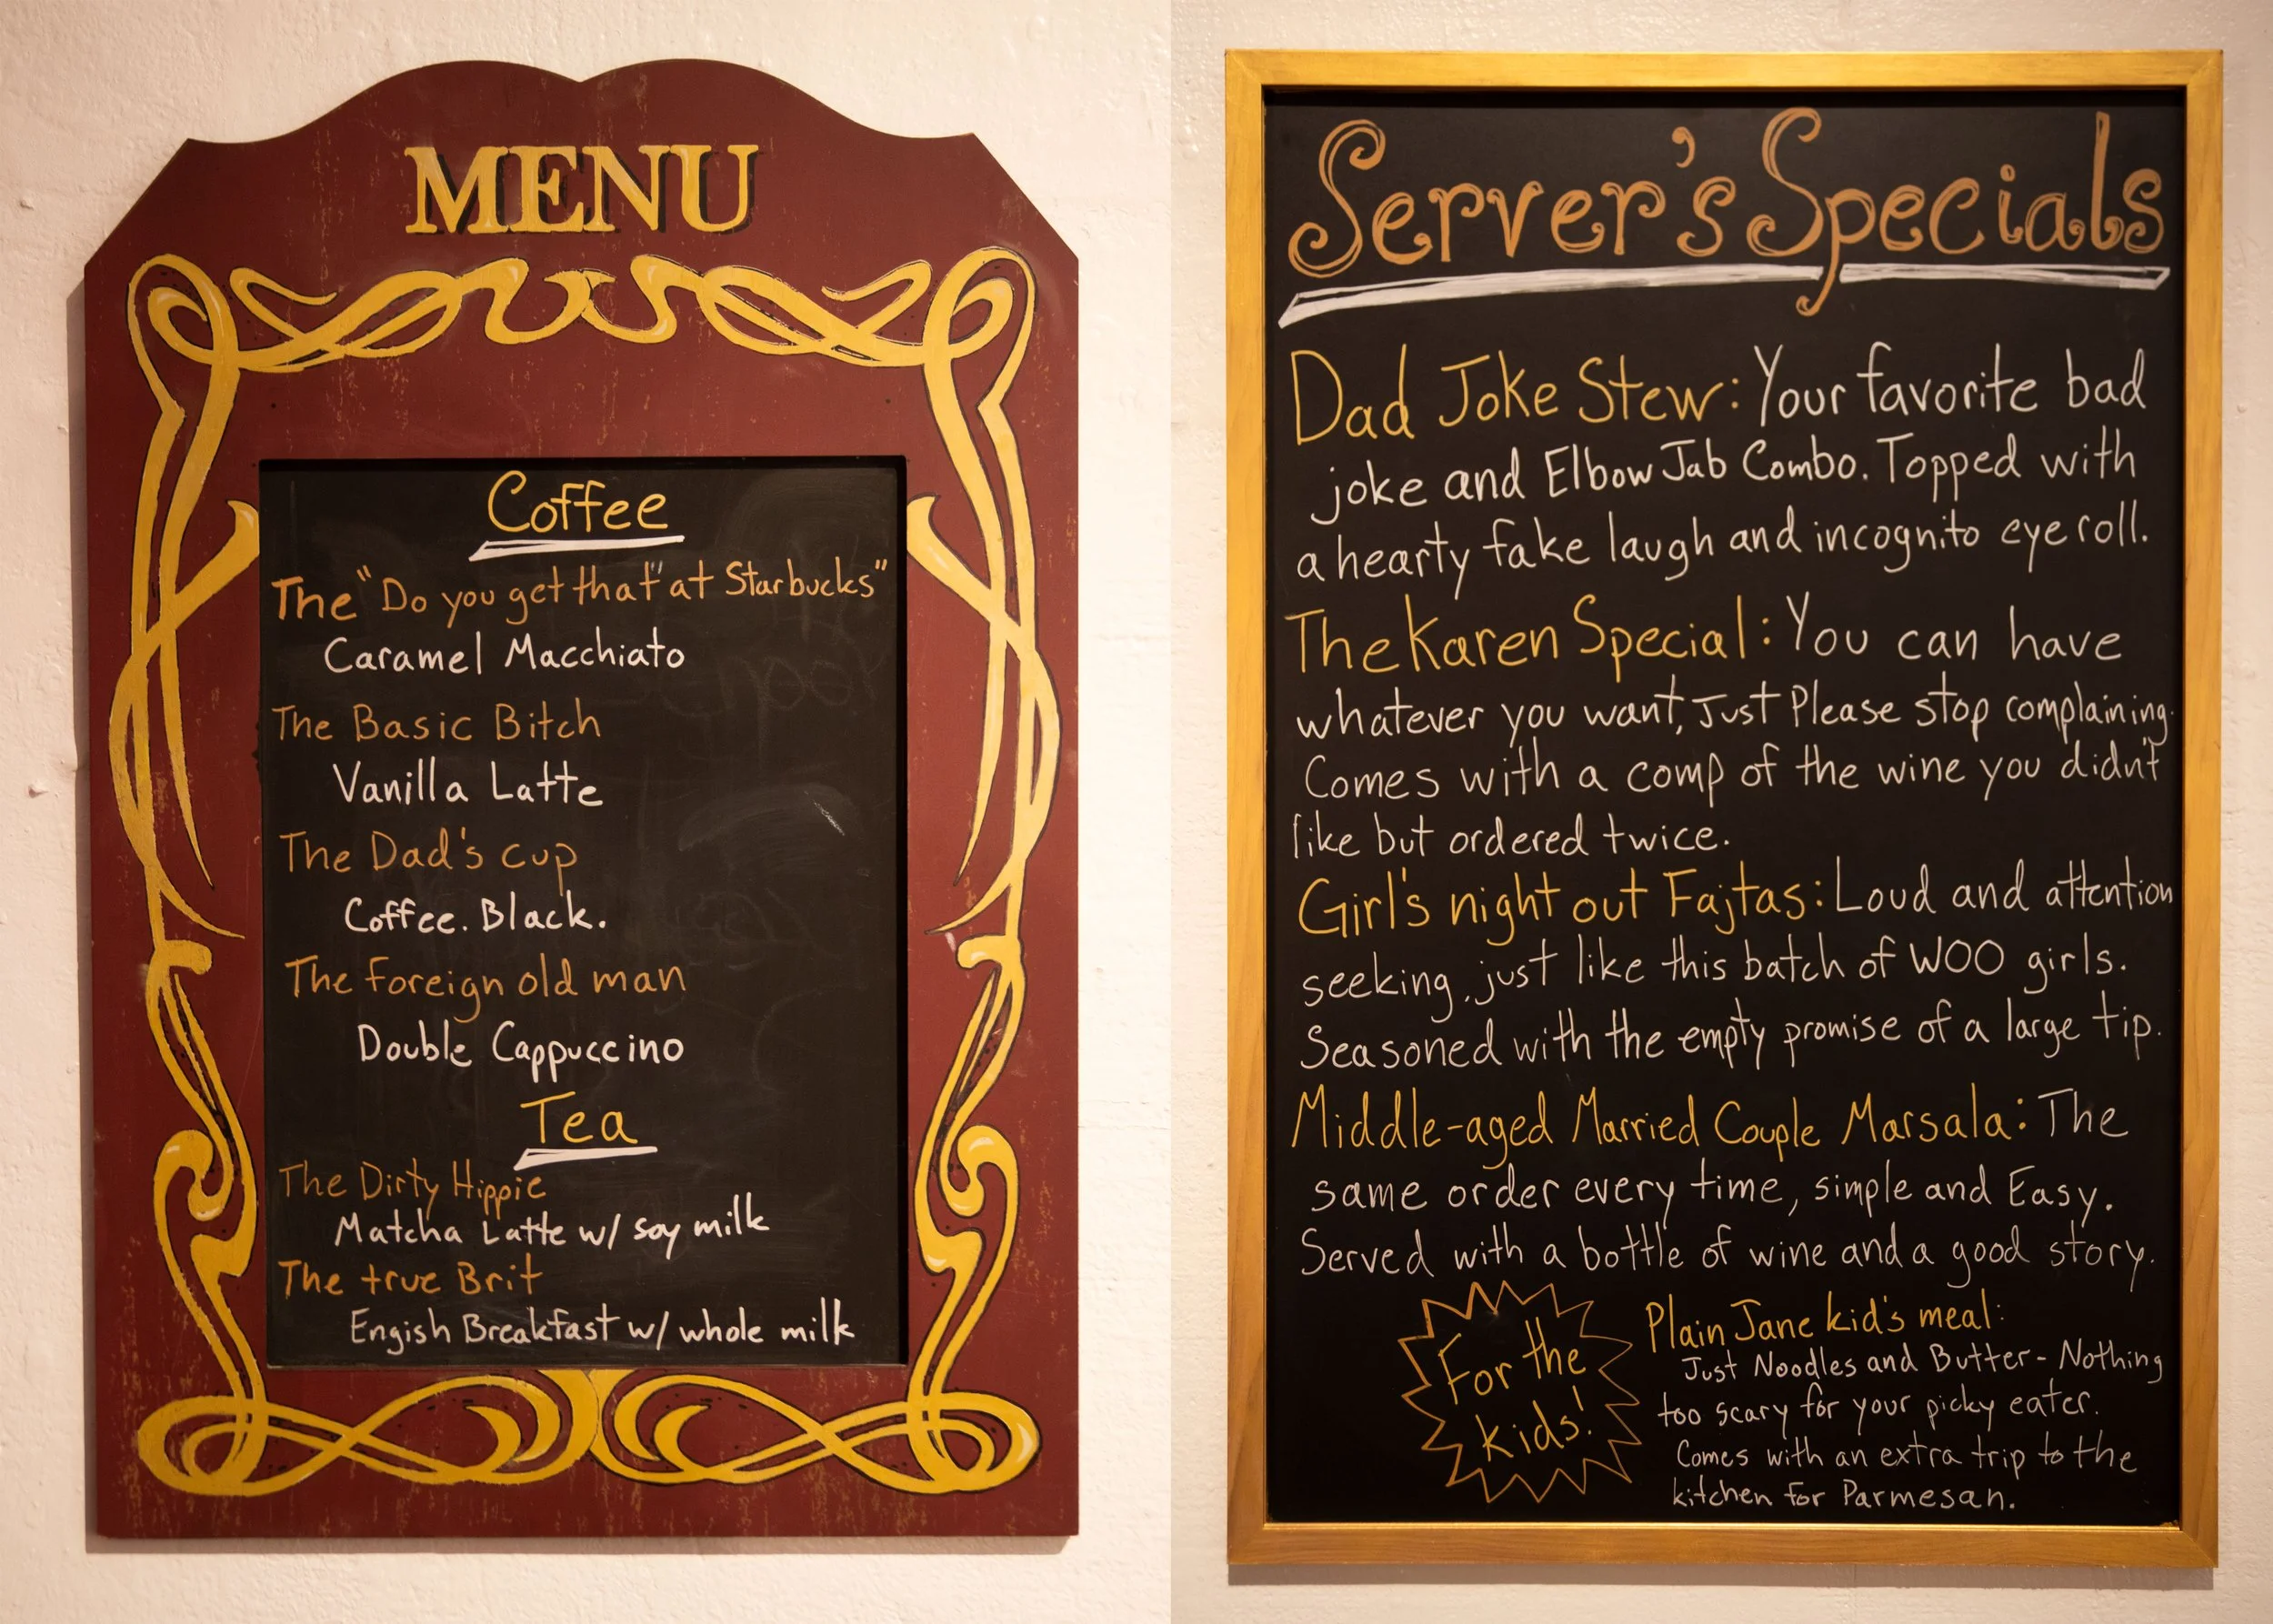 MENU
Coffee
The "Do you get that" at Starbucks"
Caramel Macchiato
The Basic Bitch
Vanilla Latte
The Dad's cup
Coffee. Black.
The foreign old man
Double Cappuccino
Tea
The Dirty Hippie
Matcha Latte w/ soy milk
The true Brit
Engish Breakfast w/ whole milk
Server's Specials
Dad Joke Stew: Your favorite bad
joke and Elbow Jab Combo. Topped with
a hearty fake laugh and incognito eye roll.
The Karen Special: You can have
whatever you want, Just Please stop complaining.
Comes with a comp of the wine you didn't
like but ordered twice.
Girl's night out Fajtas: Loud and attention
seeking, just like this batch of WOO girls.
Seasoned with the empty promise of a large tip.
Middle-aged Married Couple Marsala: The
same order every time, simple and Easy.
Served with a bottle of wine and a good story.
For the
kids!
Plain Jane kid's meal:
Just Noodles and Butter - Nothing
too scary for your picky eater.
Comes with an extra trip to the
kitchen for Parmesan.